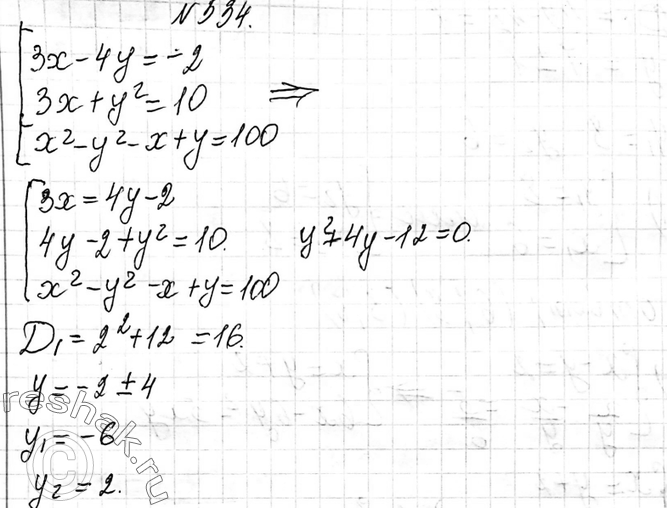 №334.
3x-4y=-2
3x+y²=10 ⇒
x²-y²-x+y=100
3x=4y-2
4y-2+y²=10. y²+4y-12=0.
x²-y²-x+y=100
D₁=2²+12=16.
y=-2±4
y₁=-6
y₂=2.
reshak.ru